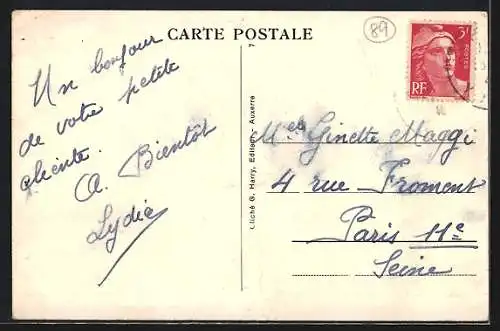 CARTE POSTALE
89
3F
POSTES
RF
Un bonjour
de votre petite
cliente.
A. Bientôt
Lydie
Cliché G. Harry, Editeur, Auxerre
Melle Ginette Maggi
4 rue Froment
Paris 11e
Seine